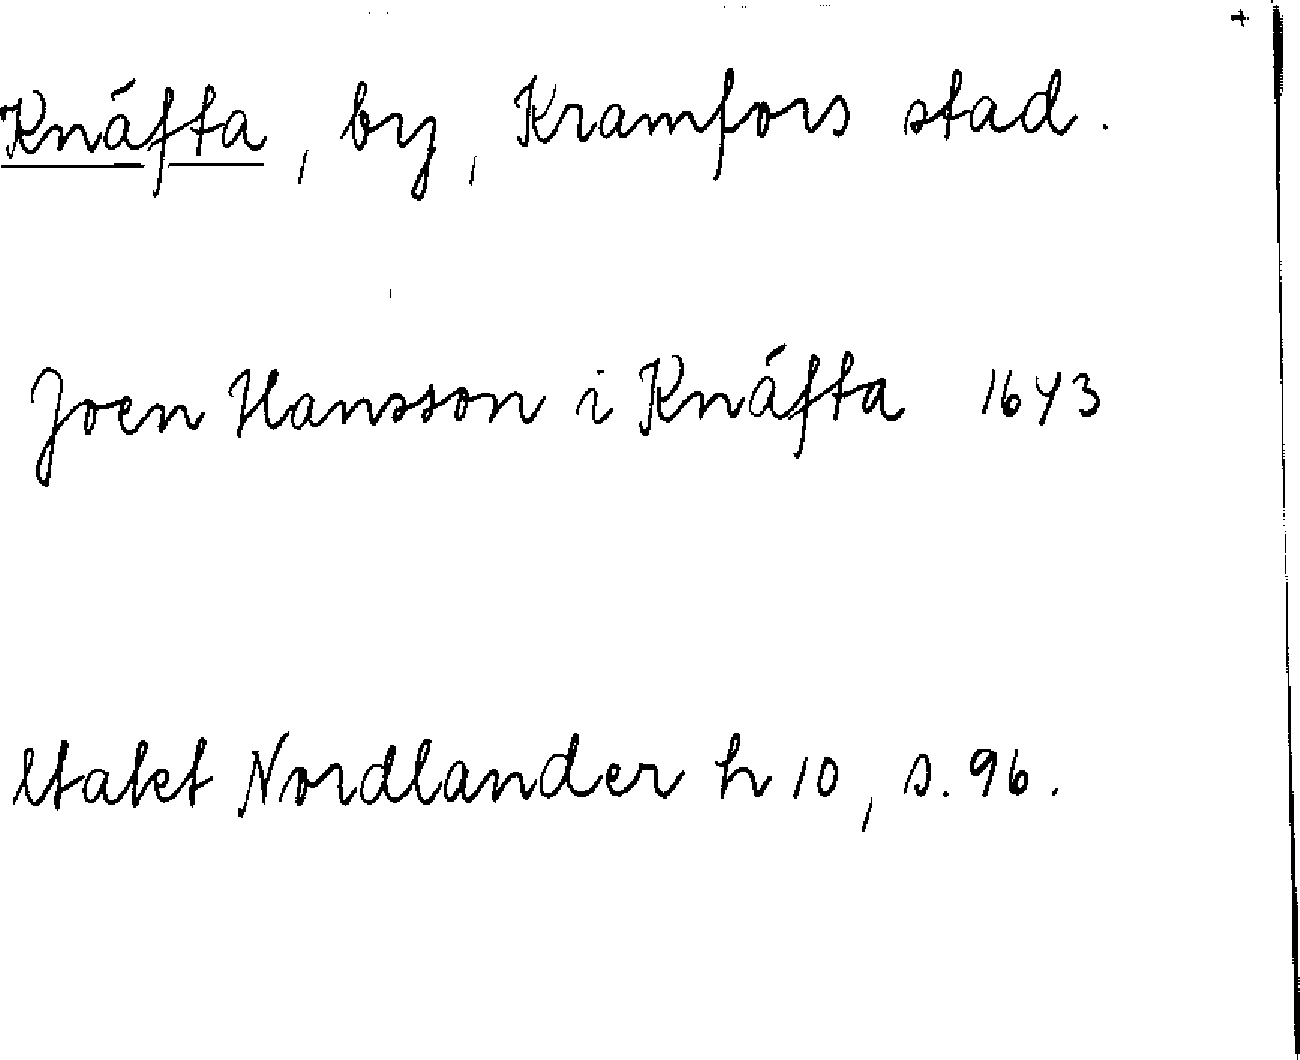 +
Knäfta, by, Kramfors stad.
Joen Hansson i Knäfta 1643
Nordlander h 10, s. 96.